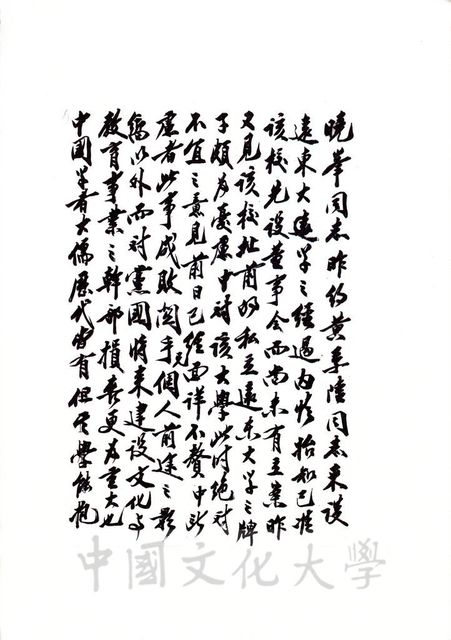 曉峯同志昨約黃季陸同志來談
遠東大遠學之經過內除指知已准
該校先設董事会而尚未有立案昨
又見該校址前的私立遠東大學之牌
子頗為憂慮中對該大學此時絕對
不宜之意見前日已經面詳不贅中所
慮者此事成敗関乎兄個人前途之影
響以外而對黨國將來建設文化与
教育事業之幹部損喪更為重大也
中國學者大儒歷代皆有但其學能抱
中國文化大學